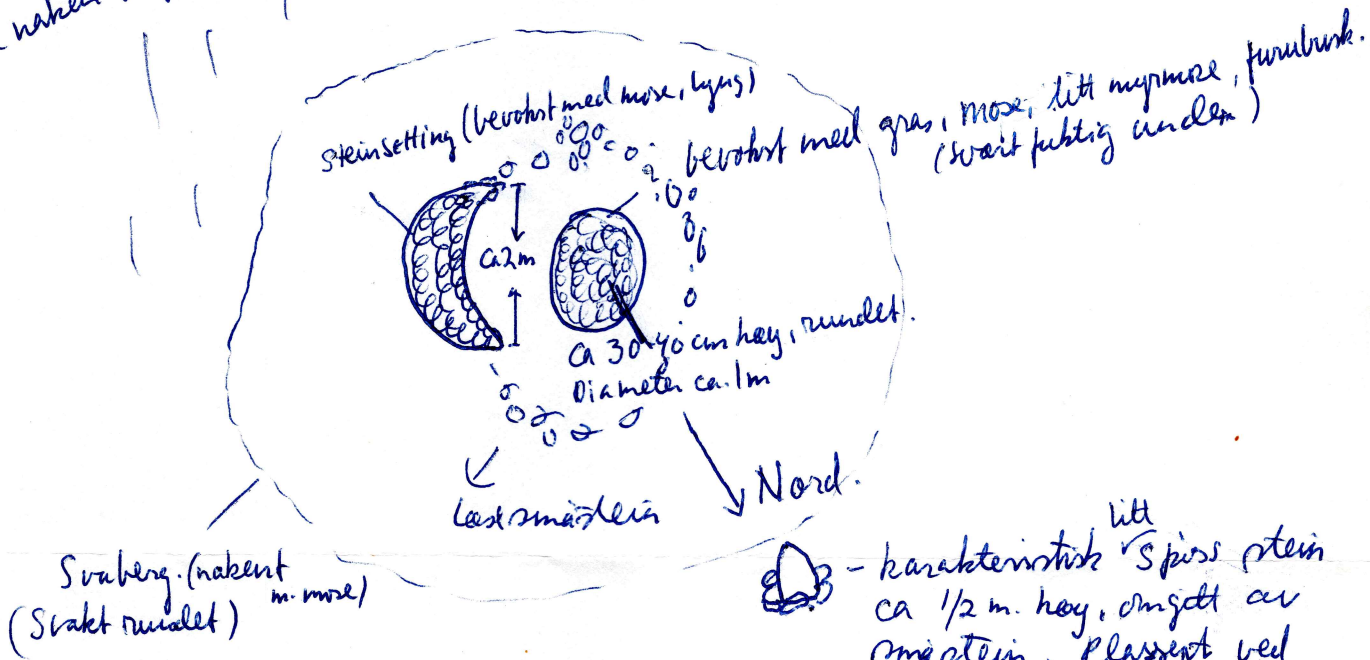 naken
Steinsetting (bevokst med mose, lyng)
bevokst med gras, mose, litt myrmose, furubusk.
(svært fuktig under)
Ca 2m
Ca 30-40 cm høy, rundet.
Diameter ca. 1m
Nord.
Løse småstein
Svaberg. (nakent
m. mose)
(Svakt rundet)
litt
- karakteristisk spiss stein
ca 1/2 m. høy, omgitt av
småstein. Plassert ved